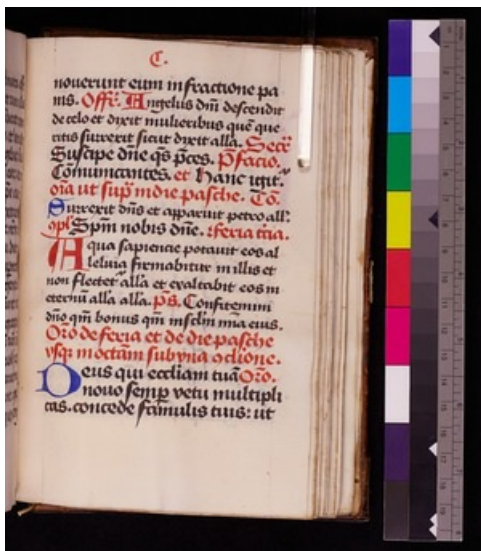 C.
noverunt eum in fractione pa
nis. Offr. Angelus dni descendit
de celo et dixit mulieribus quē que
ritis surrexit sicut dixit alla. Secr
Suscipe dne qs p̄ces. P̄facio.
Cōmunicantes. et Hanc igit.
oīa ut sup̄ in die pasche. Cō.
Surrexit dn̄s et apparuit petro all.
9pl. Spm̄ nobis dne. Feria t̄cia.
Aqua sapiencie potavit eos al
leluia firmabitur in illis et
non flectet alla et exaltabit eos in
eternū alla alla. p̄s. Confitemini
dn̄o qm̄ bonus qm̄ in sclm̄ mīa eius.
Oro de feria et de die pasche
usq; in octām sub una 9clione.
Deus qui eccliam tuā Oro.
novo semp̄ vetu multipli
cas. concede famulis tuis: ut